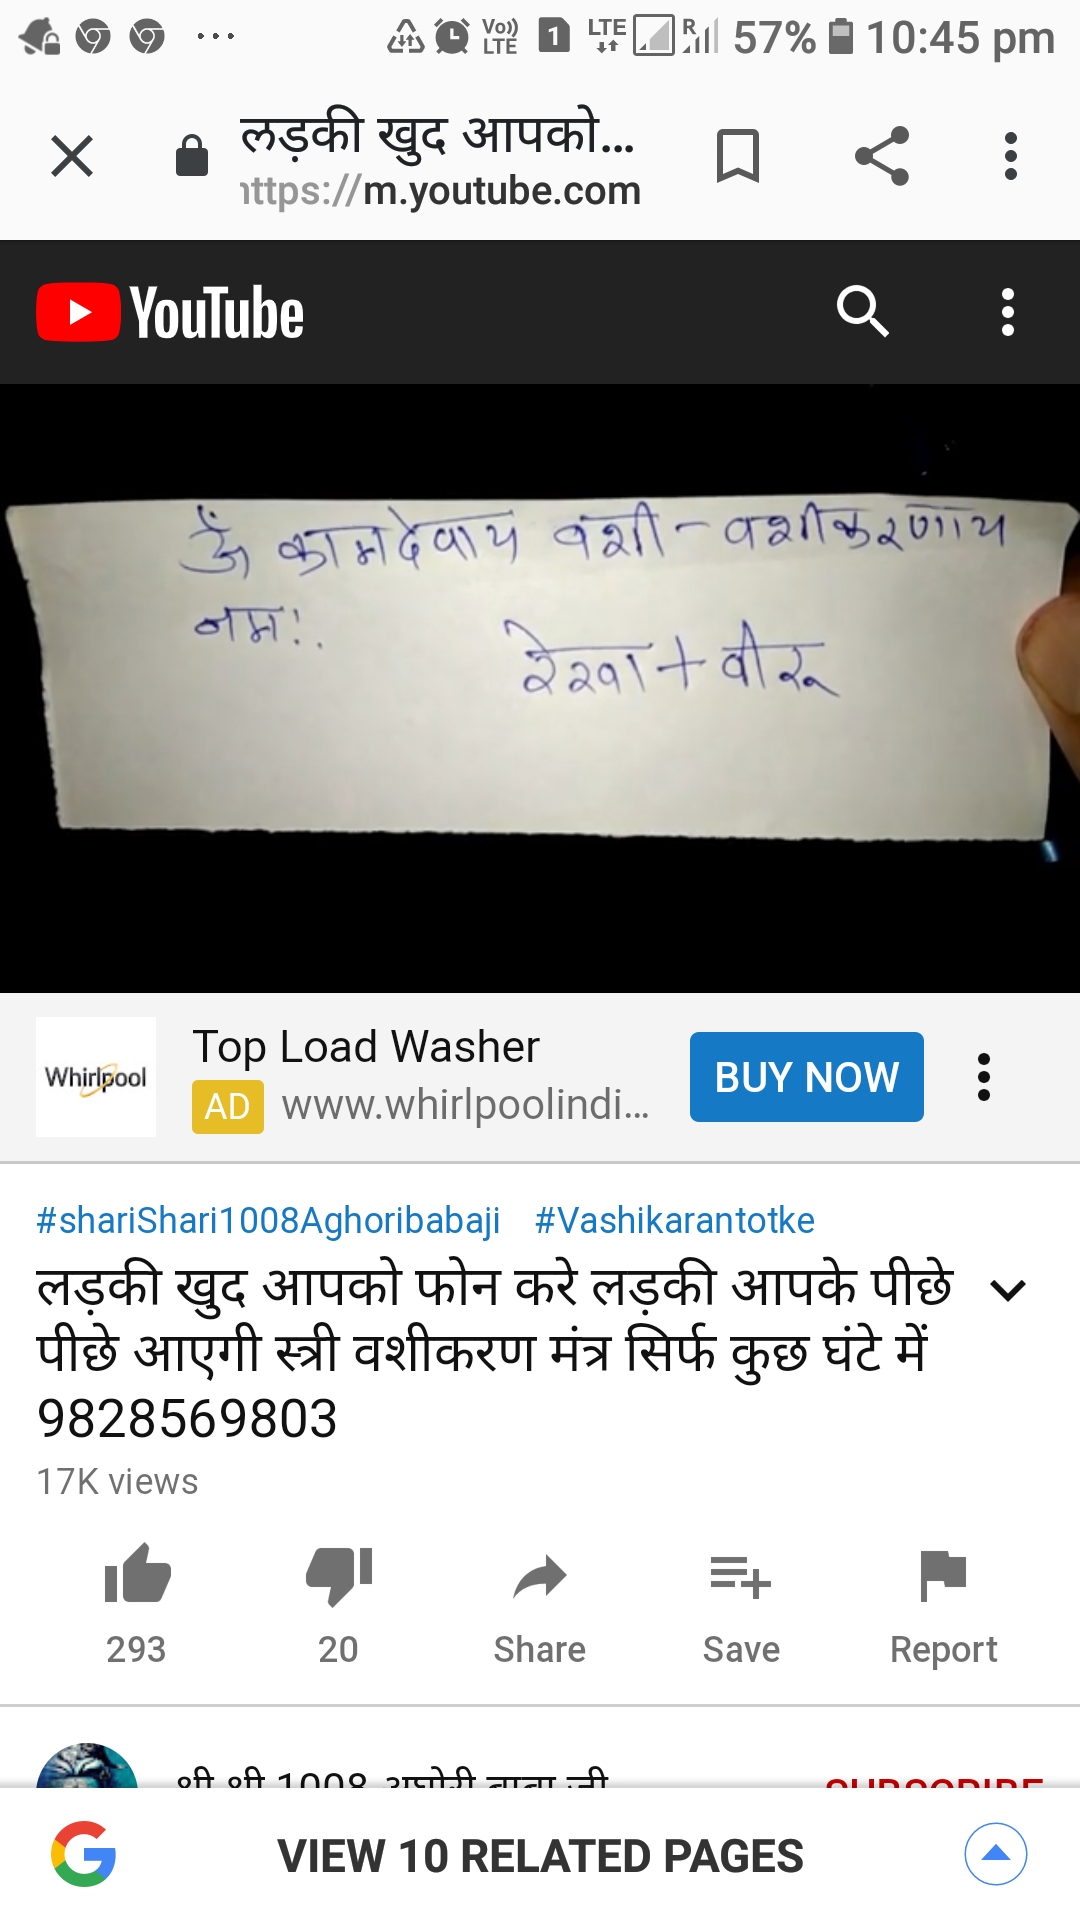 Vo)) LTE 1 LTE R 57% 10:45 pm
लड़की खुद आपको...
https://m.youtube.com
YouTube
ॐ कामदेवाय वशी-वशीकरणाय
नमः.
रेखा + वीरू
Whirlpool
Top Load Washer
AD www.whirlpoolindi...
BUY NOW
#shariShari1008Aghoribabaji #Vashikarantotke
लड़की खुद आपको फोन करे लड़की आपके पीछे
पीछे आएगी स्त्री वशीकरण मंत्र सिर्फ कुछ घंटे में
9828569803
17K views
293 20 Share Save Report
श्री श्री 1008 अघोरी बाबा जी SUBSCRIBE
VIEW 10 RELATED PAGES